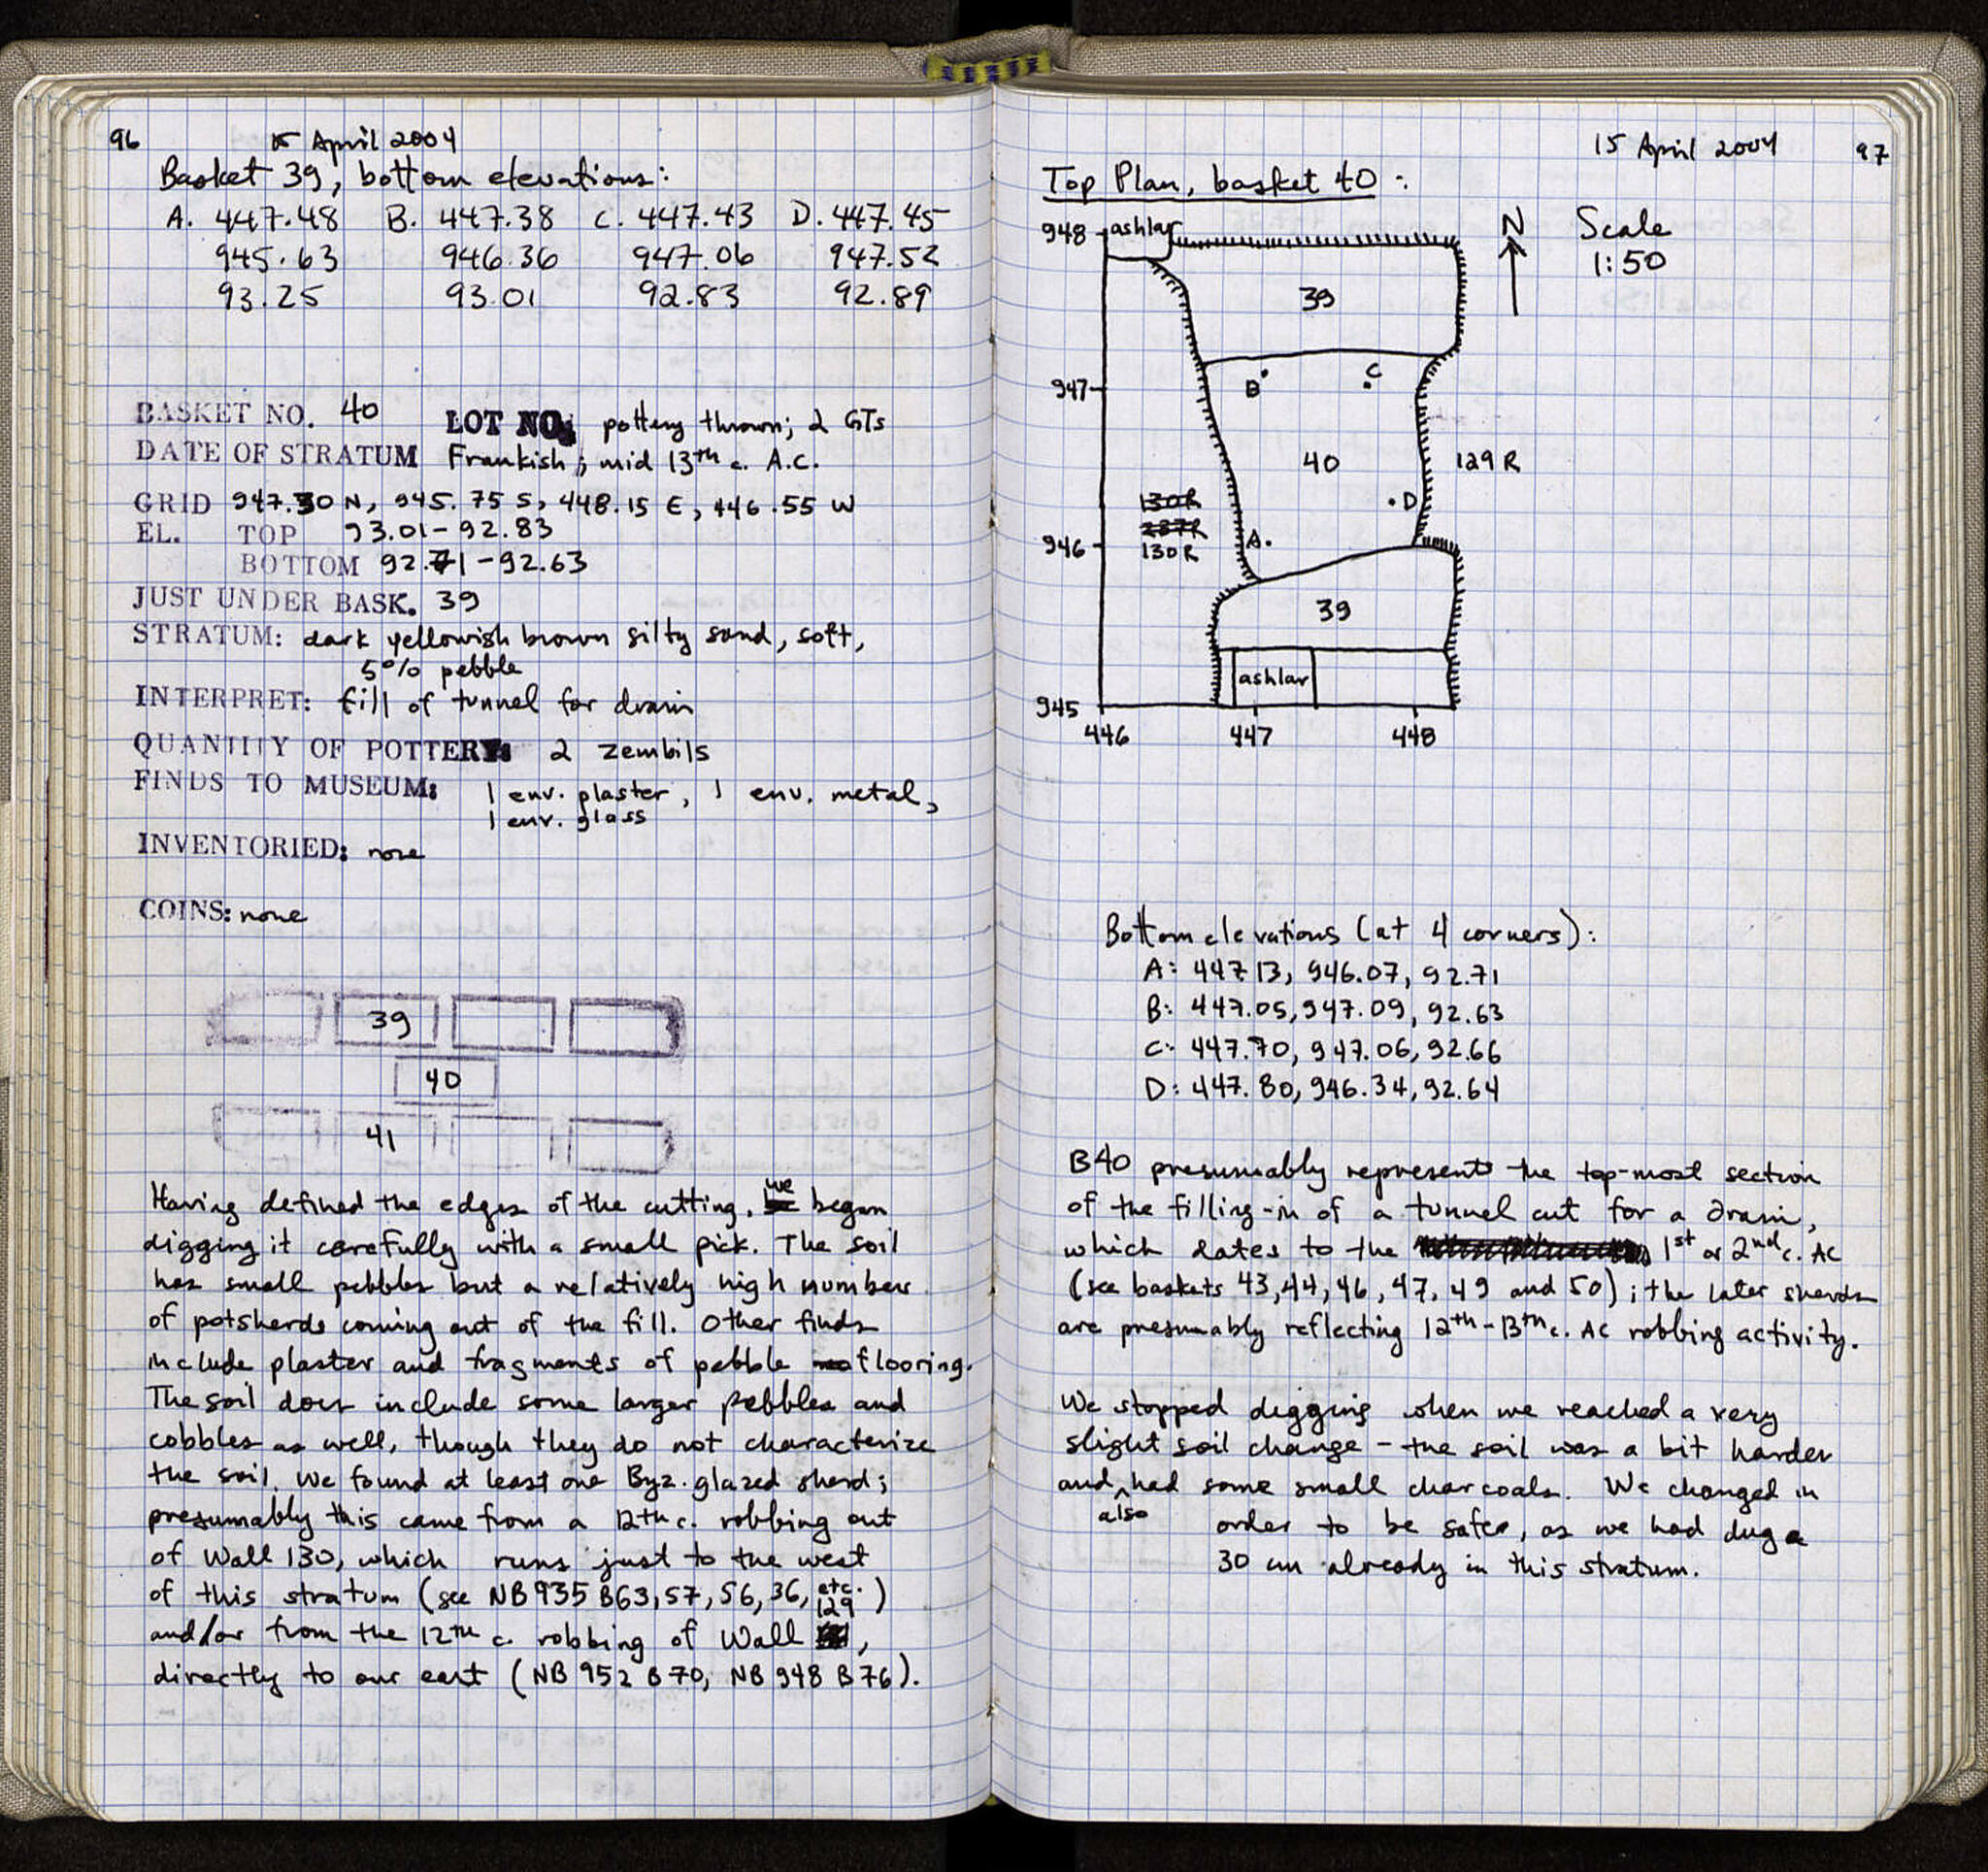 96
15 April 2004
Basket 39, bottom elevations:
A. 447.48 B. 447.38 C. 447.43 D. 447.45
945.63 946.36 947.06 947.52
93.25 93.01 92.83 92.89
BASKET NO. 40 LOT NO. pottery thrown; 2 GTs
DATE OF STRATUM Frankish; mid 13th c. A.C.
GRID 947.30 N, 945.75 S, 448.15 E, 446.55 W
EL. TOP 93.01-92.83
BOTTOM 92.71-92.63
JUST UNDER BASK. 39
STRATUM: dark yellowish brown silty sand, soft,
5% pebble
INTERPRET: fill of tunnel for drain
QUANTITY OF POTTERY: 2 zembils
FINDS TO MUSEUM: 1 env. plaster, 1 env. metal,
1 env. glass
INVENTORIED: none
COINS: none
39
40
41
Having defined the edges of the cutting, we began
digging it carefully with a small pick. The soil
has small pebbles but a relatively high number
of potsherds coming out of the fill. Other finds
include plaster and fragments of pebble flooring.
The soil does include some larger pebbles and
cobbles as well, though they do not characterize
the soil. We found at least one Byz. glazed sherd;
presumably this came from a 12th c. robbing out
of Wall 130, which runs just to the west
of this stratum (see NB 935 B63, 57, 56, 36, etc.)
and/or from the 12th c. robbing of Wall 129,
directly to our east (NB 952 B70, NB 948 B76).
15 April 2004 97
Top Plan, basket 40:
N Scale
1:50
948 ashlar
39
947
B C
40 129 R
130R
237R
130R
D
946 A.
39
ashlar
945
446 447 448
Bottom elevations (at 4 corners):
A: 447.13, 946.07, 92.71
B: 447.05, 947.09, 92.63
C: 447.70, 947.06, 92.66
D: 447.80, 946.34, 92.64
B40 presumably represents the top-most section
of the filling-in of a tunnel cut for a drain,
which dates to the 1st or 2nd c. AC
(see baskets 43, 44, 46, 47, 49 and 50); the later sherds
are presumably reflecting 12th-13th c. AC robbing activity.
We stopped digging when we reached a very
slight soil change - the soil was a bit harder
and also had some small charcoals. We changed in
order to be safer, as we had dug a
30 cm already in this stratum.